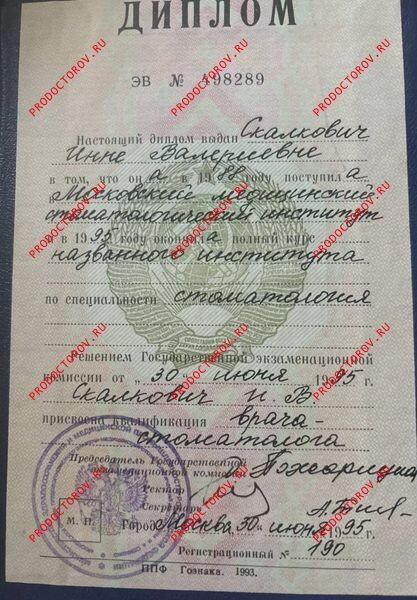 ДИПЛОМ
ЭВ № 498289
Настоящий диплом выдан Скалкович
Инне Валериевне
в том, что она в 1988 году поступила
в Московский медицинский
стоматологический институт
и в 1995 году окончила полный курс
названного института
по специальности стоматология
Решением Государственной экзаменационной
комиссии от „30“ июня 1995 г.
Скалкович И. В.
присвоена квалификация врача-
стоматолога
Председатель Государственной
экзаменационной комиссии
Ректор
Секретарь
М. П. Город Москва 30 июня 1995 г.
Регистрационный № 190
ППФ Гознака. 1993.
PRODOCTOROV.RU